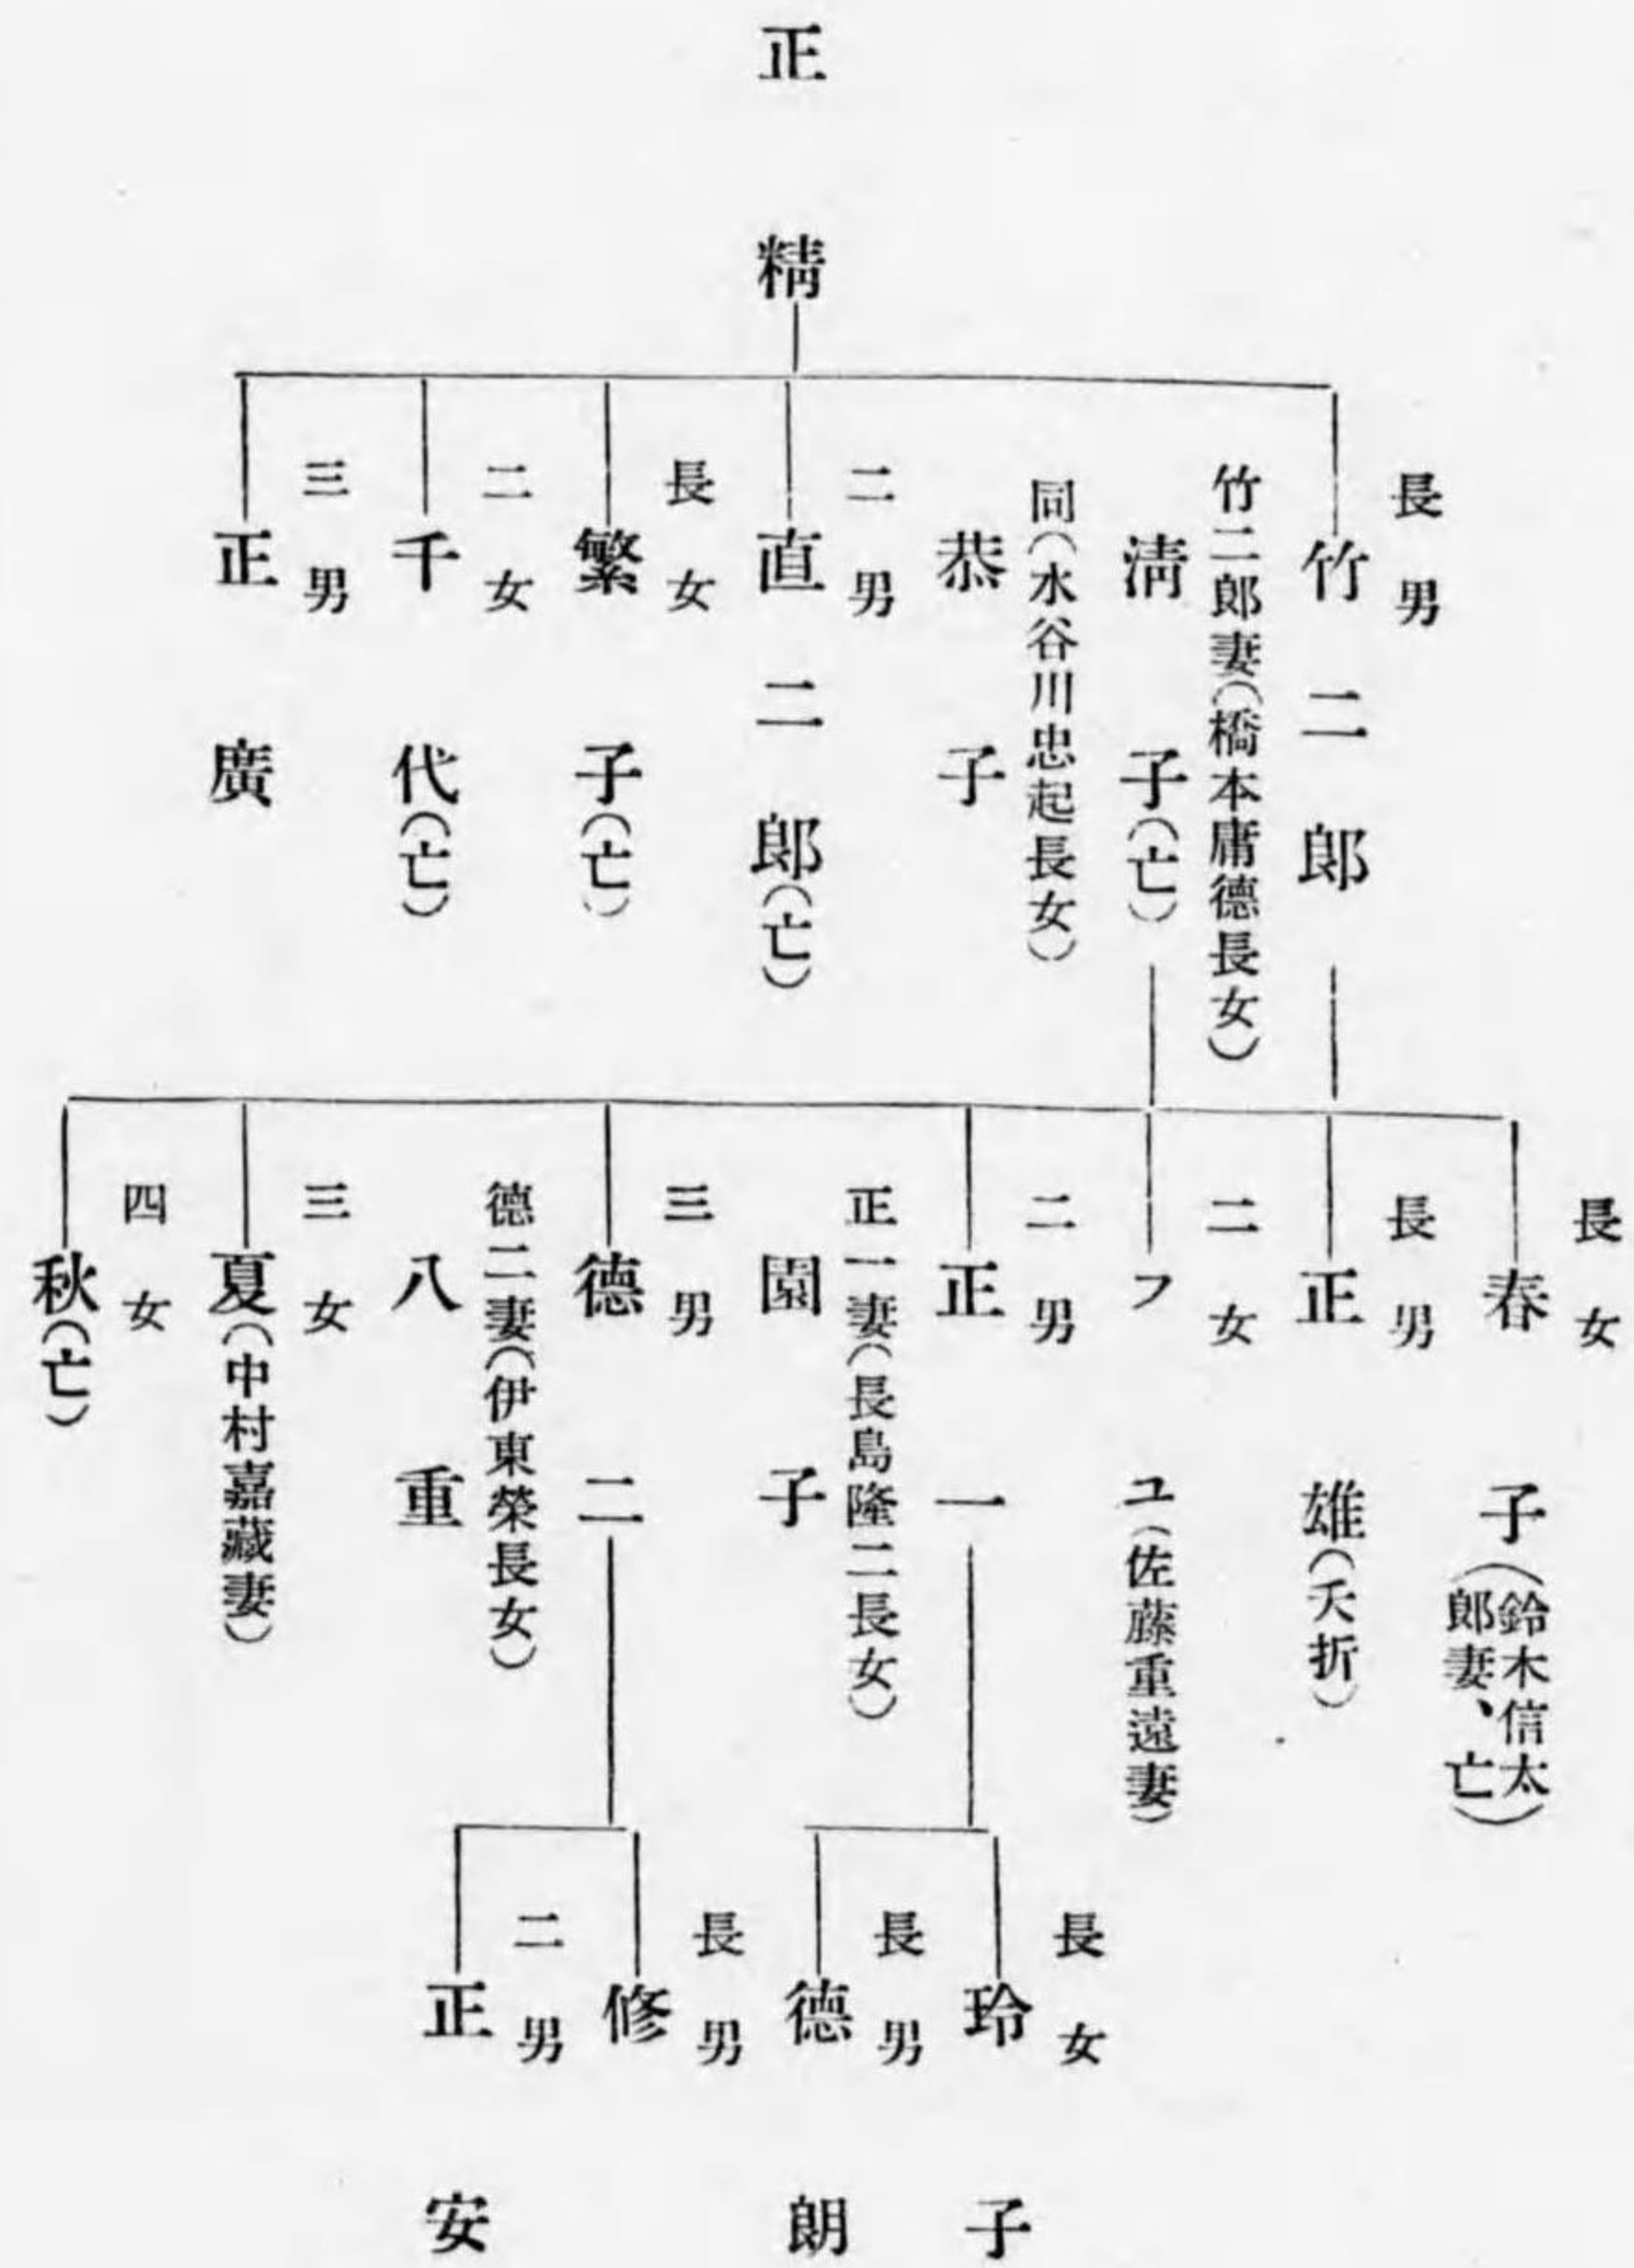 正精
長男
竹二郎
竹二郎妻(橋本庸德長女)
淸子(亡)
同(水谷川忠起長女)
恭子
二男
直二郎(亡)
長女
繁子(亡)
二女
千代(亡)
三男
正廣
長女
春子(鈴木信太
郎妻、亡)
長男
正雄(夭折)
二女
フユ(佐藤重遠妻)
二男
正一
正一妻(長島隆二長女)
園子
三男
德二
德二妻(伊東榮長女)
八重
三女
夏(中村嘉藏妻)
四女
秋(亡)
長女
玲子
長男
德朗
長男
修
二男
正安